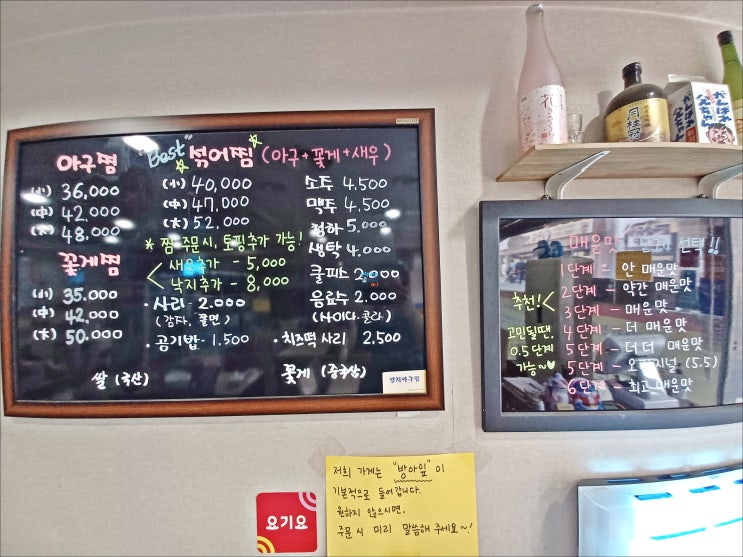 아구찜
(小) 36,000
(中) 42,000
(大) 48,000
꽃게찜
(小) 35,000
(中) 42,000
(大) 50,000
쌀 (국산)
"Best" 섞어찜 (아구+꽃게+새우)
(小) 40,000
(中) 47,000
(大) 52,000
* 찜 주문시, 토핑추가 가능!
새우추가 - 5,000
낙지추가 - 8,000
·사리 - 2,000
(감자, 쫄면)
·공기밥 - 1,500
소주 4,500
맥주 4,500
청하 5,000
생탁 4,000
쿨피스 2,000
음료수 2,000
(사이다·콜라)
·치즈떡 사리 2,500
꽃게 (중국산)
매운맛 단계 선택!!
1단계 - 안 매운맛
2단계 - 약간 매운맛
3단계 - 매운맛
4단계 - 더 매운맛
5단계 - 더더 매운맛
5단계 - 오리지널 (5.5)
6단계 - 최고 매운맛
추천!
고민될땐,
0.5단계
가능~♥
저희 가게는 "방아잎"이
기본적으로 들어갑니다.
원하지 않으시면,
주문시 미리 말씀해 주세요~!
요기요
花
月桂冠
がんばれ
父ちゃん